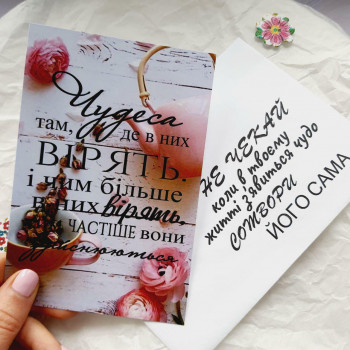 Чудеса
там, де в них
ВІРЯТЬ.
і чим більше
в них вірять,
ТИМ ЧАСТІШЕ вони
здійснюються
НЕ ЧЕКАЙ
коли в твоєму
житті з'явиться чудо
СОТВОРИ
ЙОГО САМА